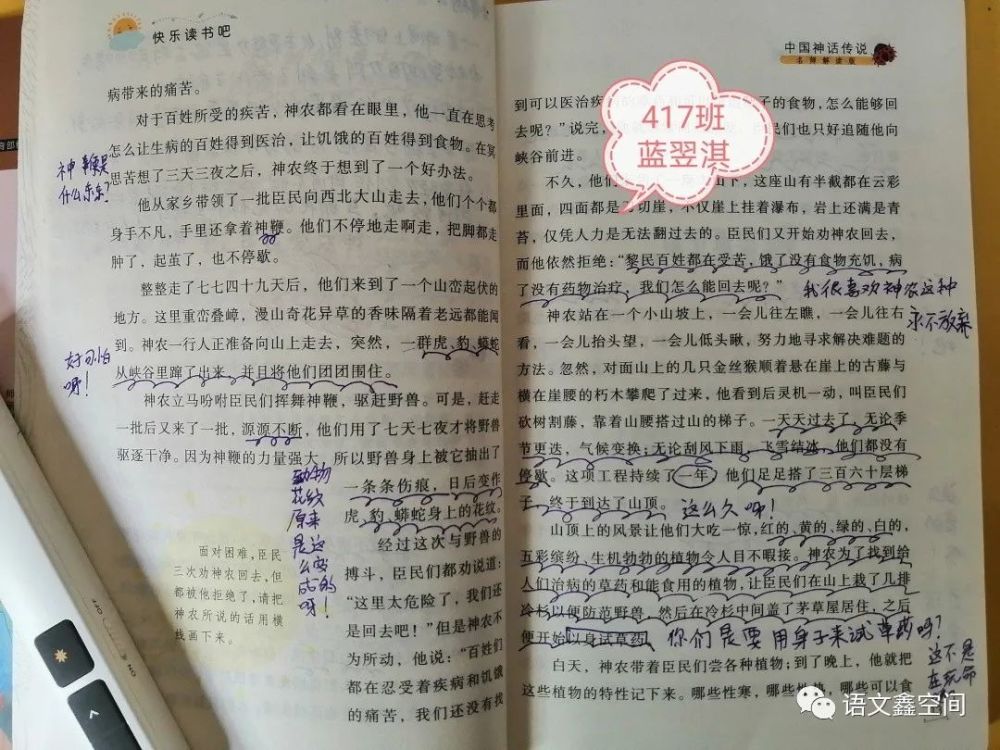 快乐读书吧
病带来的痛苦。
对于百姓所受的疾苦，神农都看在眼里，他一直在思考
怎么让生病的百姓得到医治，让饥饿的百姓得到食物。在冥
思苦想了三天三夜之后，神农终于想到了一个好办法。
神鞭是
什么东东？
他从家乡带领了一批臣民向西北大山走去，他们个个都
身手不凡，手里还拿着神鞭。他们不停地走啊走，把脚都走
肿了，起茧了，也不停歇。
整整走了七七四十九天后，他们来到了一个山峦起伏的
地方。这里重峦叠嶂，漫山奇花异草的香味隔着老远都能闻
到。神农一行人正准备向山上走去，突然，一群虎、豹、蟒蛇
从峡谷里蹿了出来，并且将他们团团围住。
好可怕
呀！
神农立马吩咐臣民们挥舞神鞭，驱赶野兽。可是，赶走
一批后又来了一批，源源不断，他们用了七天七夜才将野兽
驱逐干净。因为神鞭的力量强大，所以野兽身上被它抽出了
一条条伤痕，日后变作
虎、豹、蟒蛇身上的花纹。
动物
花纹
原来
是这
么变
成的
呀！
经过这次与野兽的
搏斗，臣民们都劝说道：
“这里太危险了，我们还
是回去吧！”但是神农不
为所动，他说：“百姓们
都在忍受着疾病和饥饿
的痛苦，我们还没有找
面对困难，臣民
三次劝神农回去，但
都被他拒绝了，请把
神农所说的话用横
线画下来。
中国神话传说
名师解读版
417班
蓝翌淇
到可以医治疾 子的食物，怎么能够回
去呢？”说完， 民们也只好追随他向
峡谷前进。
不久，他们 山下，这座山有半截都在云彩
里面，四面都是 切崖，不仅崖上挂着瀑布，岩上还满是青
苔，仅凭人力是无法翻过去的。臣民们又开始劝神农回去，
而他依然拒绝：“黎民百姓都在受苦，饿了没有食物充饥，病
了没有药物治疗，我们怎么能回去呢？”
我很喜欢神农这种
永不放弃
神农站在一个小山坡上，一会儿往左瞧，一会儿往右
看，一会儿抬头望，一会儿低头瞅，努力地寻求解决难题的
方法。忽然，对面山上的几只金丝猴顺着悬在崖上的古藤与
横在崖腰的朽木攀爬了过来，他看到后灵机一动，叫臣民们
砍树割藤，靠着山腰搭过山的梯子。一天天过去了，无论季
节更迭，气候变换；无论刮风下雨，飞雪结冰，他们都没有
停歇。这项工程持续了一年，他们足足搭了三百六十层梯
子，终于到达了山顶。
这么久呀！
山顶上的风景让他们大吃一惊，红的、黄的、绿的、白的，
五彩缤纷，生机勃勃的植物令人目不暇接。神农为了找到给
人们治病的草药和能食用的植物，让臣民们在山上栽了几排
冷杉以便防范野兽，然后在冷杉中间盖了茅草屋居住，之后
便开始以身试草药。
你们是要用身子来试草药吗？
这不是
在玩命
白天，神农带着臣民们尝各种植物；到了晚上，他就把
这些植物的特性记下来。哪些性寒，哪些性热，哪些可以食
语文鑫空间